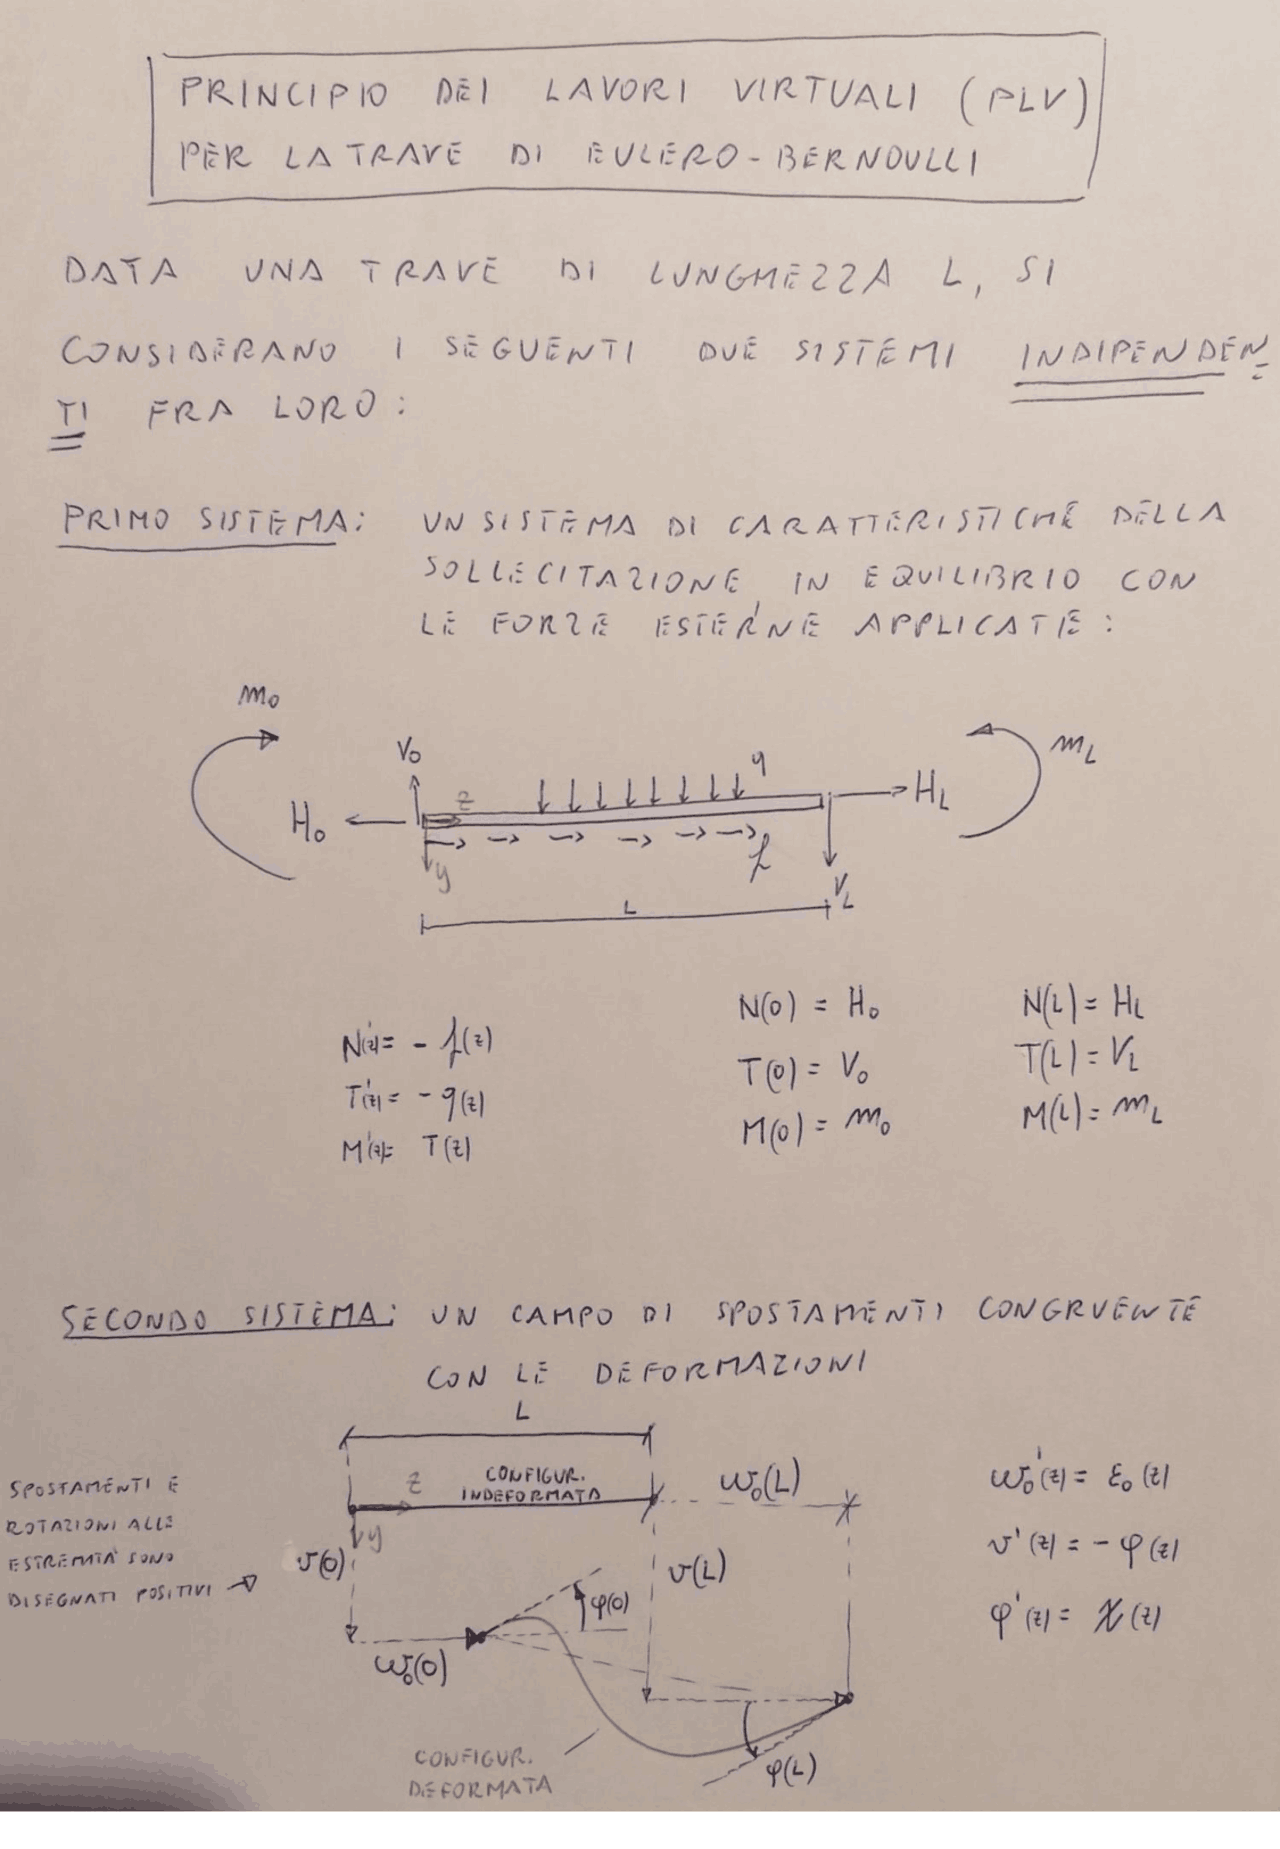 PRINCIPIO DEI LAVORI VIRTUALI (PLV)
PER LA TRAVE DI EULERO-BERNOULLI
DATA UNA TRAVE DI LUNGHEZZA L, SI
CONSIDERANO I SEGUENTI DUE SISTEMI INDIPENDEN-
TI FRA LORO:
PRIMO SISTEMA: UN SISTEMA DI CARATTERISTICHE DELLA
SOLLECITAZIONE IN EQUILIBRIO CON
LE FORZE ESTERNE APPLICATE:
m₀
V₀
q
m_L
H₀
z
H_L
y
f
V_L
L
N'(z) = - f(z)
T'(z) = - q(z)
M'(z) = T(z)
N(0) = H₀
T(0) = V₀
M(0) = m₀
N(L) = H_L
T(L) = V_L
M(L) = m_L
SECONDO SISTEMA: UN CAMPO DI SPOSTAMENTI CONGRUENTE
CON LE DEFORMAZIONI
L
SPOSTAMENTI E
ROTAZIONI ALLE
ESTREMITA' SONO
DISEGNATI POSITIVI →
z
CONFIGUR.
INDEFORMATA
w₀(L)
y
v(0)
v(L)
φ(0)
w₀(0)
φ(L)
CONFIGUR.
DEFORMATA
w₀'(z) = ε₀(z)
v'(z) = - φ(z)
φ'(z) = χ(z)